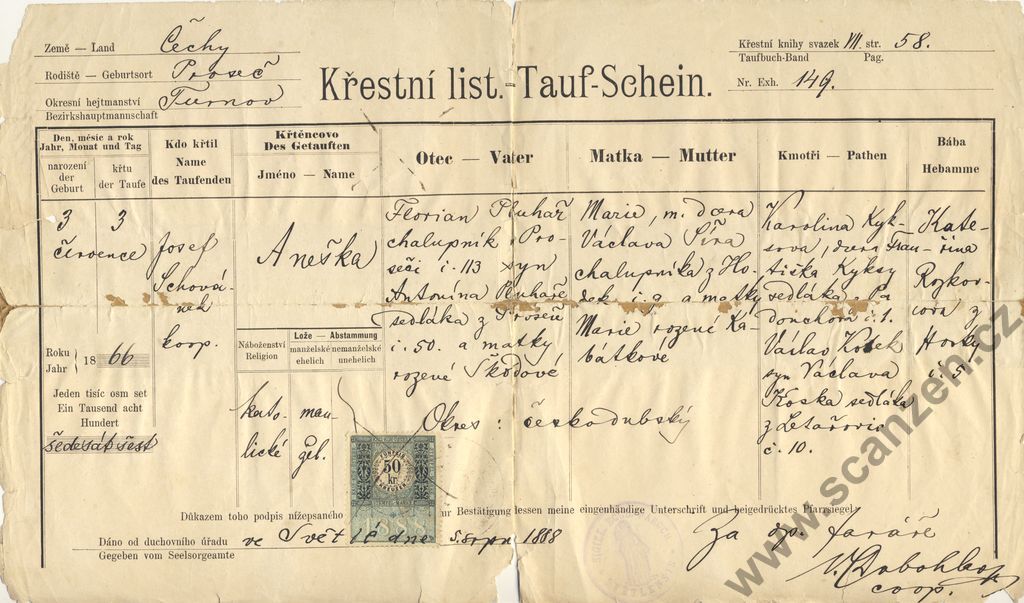 Země — Land Čechy
Rodiště — Geburtsort Proseč
Okresní hejtmanství Turnov
Bezirkshauptmannschaft
Křestní list. - Tauf-Schein.
Křestní knihy svazek VII. str. 58.
Taufbuch-Band Pag.
Nr. Exh. 149.
Den, měsíc a rok
Jahr, Monat und Tag
narození
der
Geburt
křtu
der Taufe
Kdo křtil
Name
des Taufenden
Křtěncovo
Des Getauften
Jméno — Name
Otec — Vater
Matka — Mutter
Kmotři — Pathen
Bába
Hebamme
3 3
července
Roku
Jahr
18 66
Jeden tisíc osm set
Ein Tausend acht
Hundert
šedesát šest
Josef
Schová-
nek
koop.
Aneška
Náboženství
Religion
Lože — Abstammung
manželské
ehelich
nemanželské
unehelich
kato-
lické
man-
žel.
Florian Pluhař
chalupník z Pro-
seči č. 113 syn
Antonína Pluhaře
sedláka z Proseče
č. 50. a matky
rozené Škodové
Marie, m. dcera
Václava Šíra
chalupníka z Ho-
dek č. 9 a matky
Marie rozené Ka-
bátkové
Okres: českodubský
Karolina Kyk-
sova, dcera Fran-
tiška Kyksy
sedláka z Pa
donchom č. 1.
Václav Kosek
syn Václava
Koska sedláka
z Letařovic
č. 10.
Kate-
řina
Rozkov-
cova z
Horky
č. 5
50
kr.
1888
Důkazem toho podpis nížepsaného
ur Bestätigung dessen meine eigenhändige Unterschrift und beigedrücktes Pfarrsiegel
Dáno od duchovního úřadu ve Světlé dne 5. srpn 1888
Gegeben vom Seelsorgeamte
Za dp. faráře
coop.
www.scanzen.cz